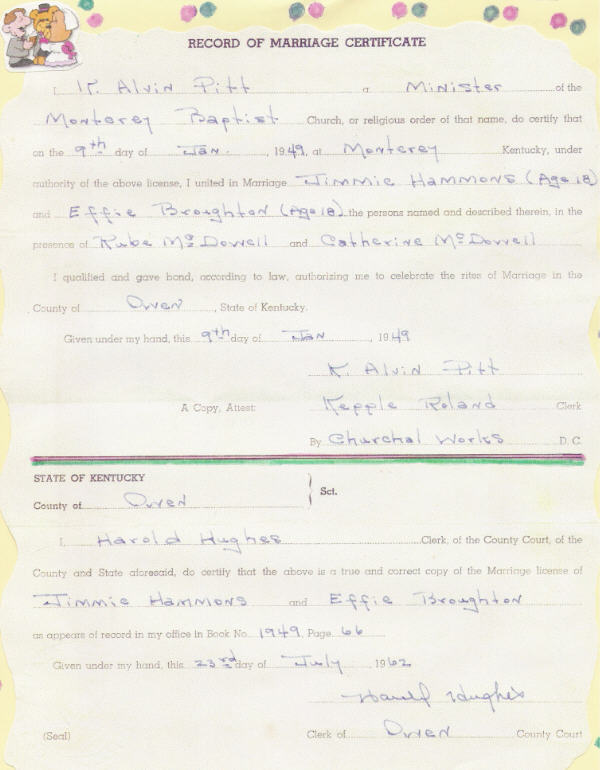 RECORD OF MARRIAGE CERTIFICATE
I, K. Alvin Pitt a Minister of the
Monterey Baptist Church, or religious order of that name, do certify that
on the 9th day of Jan. , 1949, at Monterey Kentucky, under
authority of the above license, I united in Marriage Jimmie Hammons (Age 18)
and Effie Broughton (Age 18) the persons named and described therein, in the
presence of Rube McDowell and Catherine McDowell
I qualified and gave bond, according to law, authorizing me to celebrate the rites of Marriage in the
County of Owen , State of Kentucky.
Given under my hand, this 9th day of Jan , 1949
K. Alvin Pitt
A Copy, Attest: Kepple Roland Clerk
By Churchal Works D. C.
STATE OF KENTUCKY
County of Owen } Sct.
I, Harold Hughes Clerk, of the County Court, of the
County and State aforesaid, do certify that the above is a true and correct copy of the Marriage license of
Jimmie Hammons and Effie Broughton
as appears of record in my office in Book No. 1949, Page 66
Given under my hand, this 23rd day of July , 1962
Harold Hughes
(Seal) Clerk of Owen County Court